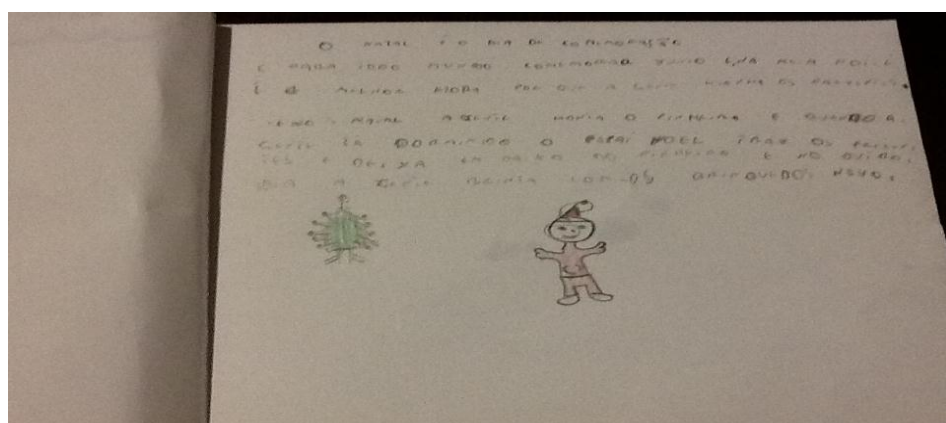 O NATAL É O DIA DE COMEMORAÇÃO
E PARA TODO MUNDO COMEMORAR
É A MELHOR HORA POR QUE A GENTE GANHA OS
NATAL A GENTE MONTA O PINHEIRO E QUANDO A
GENTE TA DORMINDO O PAPAI NOEL TRAZ OS PRESEN
TES E DEIXA EM BAIXO DO PINHEIRO E NO OUTRO
DIA A GENTE BRINCA COM OS BRINQUEDOS NOVO.